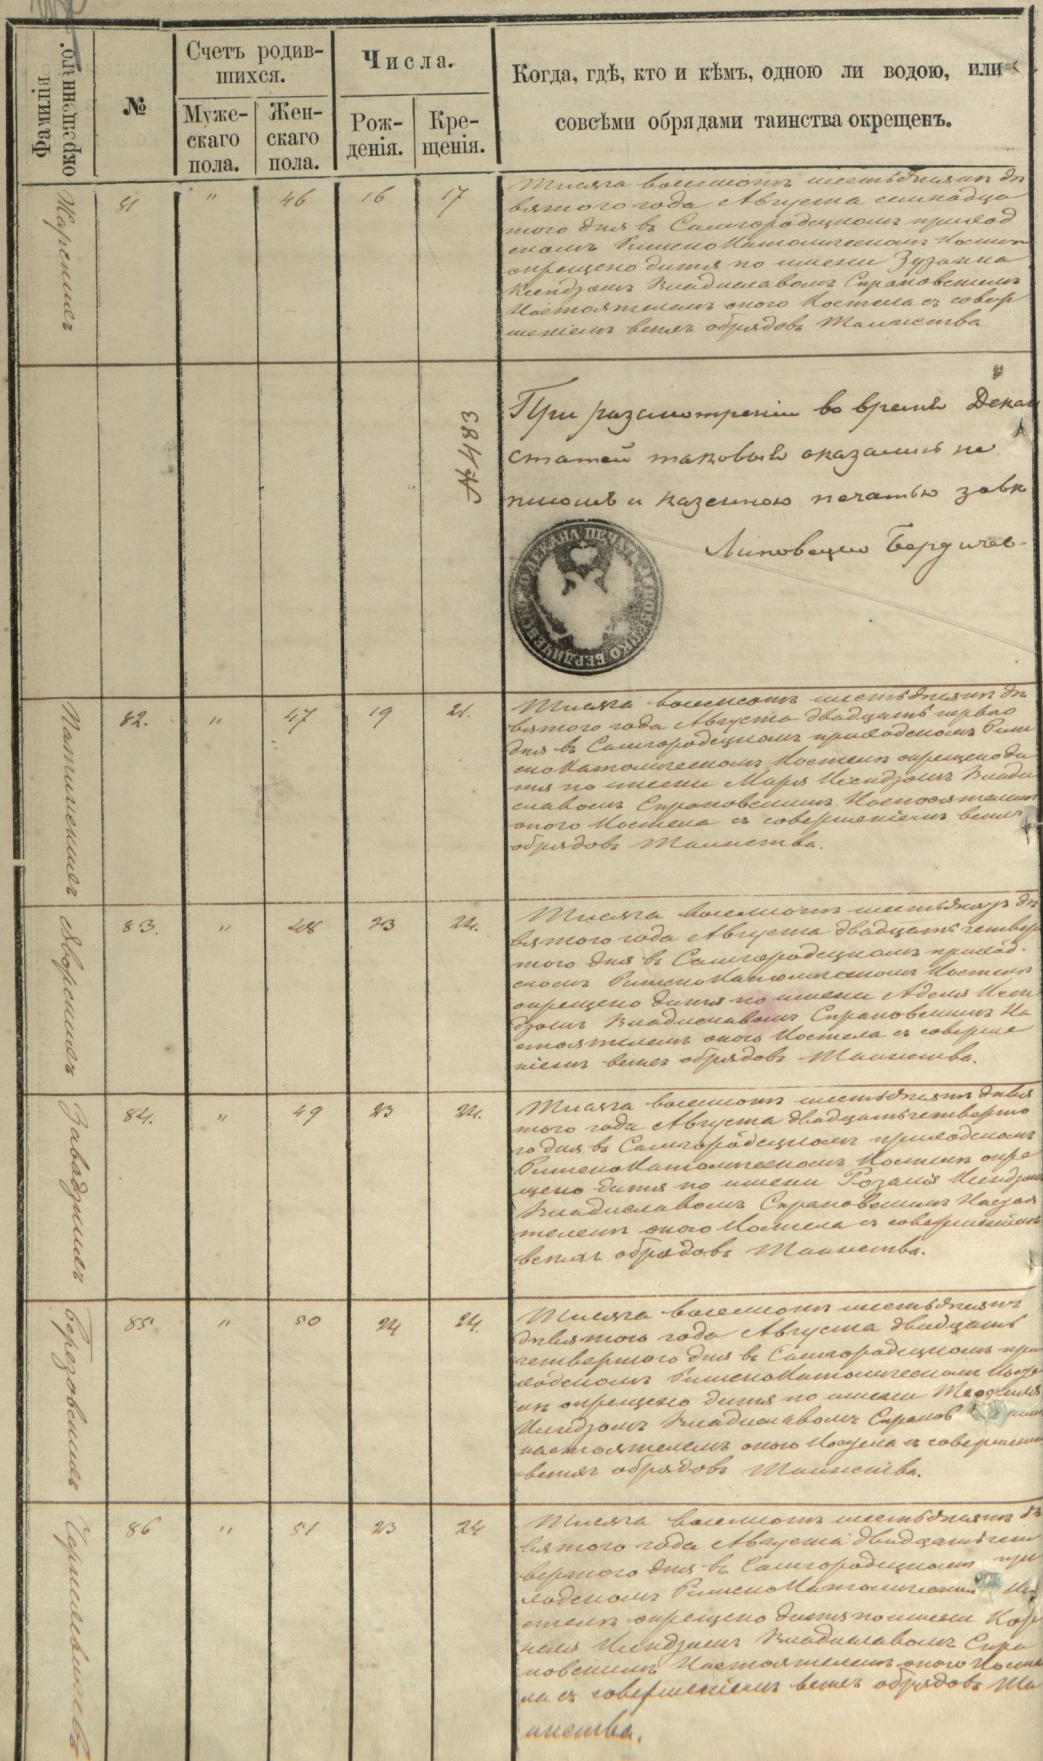 Фамилія
окрещеннаго.
№
Счетъ родив-
шихся.
Муже-
скаго
пола.
Жен-
скаго
пола.
Числа.
Рож-
денія.
Кре-
щенія.
Когда, гдѣ, кто и кѣмъ, одною ли водою, или
совсѣми обрядами таинства окрещенъ.
81 " 46 16 17
Тысяча восемьсотъ шестьдесятъ де
вятого года Августа семнадца
того дня въ Самгородецкомъ приход
скомъ РимскоКатолическомъ Костел
окрещено дитя по имени Зузанна
Ксендзомъ Владиславомъ Скраковскимъ
Настоятелемъ оного Костела съ совер
шеніемъ всехъ обрядовъ Таинства
№ 183
При разсмотреніи во время Декан
статей таковые оказались не
писомъ и казенною печатью завѣ
Липовецко Бердичев-
82. " 47 19 21.
Тысяча восемьсотъ шестьдесятъ де
вятого года Августа двадцать перваго
дня въ Самгородецкомъ приходскомъ Рим
скоКатолическомъ Костелѣ окрещено ди
тя по имени Маря Ксендзомъ Влади
славомъ Скраковскимъ Настоятелемъ
оного Костела съ совершеніемъ всехъ
обрядовъ Таинства.
Яворскихъ
83. " 48 23 24.
Тысяча восемьсотъ шестьдесятъ де
вятого года Августа двадцать четвер
того дня въ Самгородецкомъ приход-
скомъ РимскоКатолическомъ Костелѣ
окрещено дитя по имени Аделя Ксен
дзомъ Владиславомъ Скраковскимъ На
стоятелемъ оного Костела съ соверше
ніемъ всехъ обрядовъ Таинства.
Завадзкихъ
84. " 49 23 24.
Тысяча восемьсотъ шестьдесятъ девя
того года Августа двадцать четверто
го дня въ Самгородецкомъ приходскомъ
РимскоКатолическомъ Костелѣ окре
щено дитя по имени Розалія Ксендзомъ
Владиславомъ Скраковскимъ Настоя
телемъ оного Костела съ совершеніемъ
всехъ обрядовъ Таинства.
Березовскихъ
85. " 50 24 24.
Тысяча восемьсотъ шестьдесятъ
девятого года Августа двадцать
четвертого дня въ Самгородецкомъ при
ходскомъ РимскоКатолическомъ Косте
лѣ окрещено дитя по имени Теофиля
Ксендзомъ Владиславомъ Скраков
настоятелемъ оного Костела съ совершеніемъ
всехъ обрядовъ Таинства.
86 " 51 23 24
Тысяча восемьсотъ шестьдесятъ де
вятого года Августа двадцать чет
вертого дня въ Самгородецкомъ при
ходскомъ РимскоКатолическомъ Ко
стелѣ окрещено дитя по имени Кор
неля Ксендзомъ Владиславомъ Скра
ковскимъ Настоятелемъ оного Косте
ла съ совершеніемъ всехъ обрядовъ Та
инства.